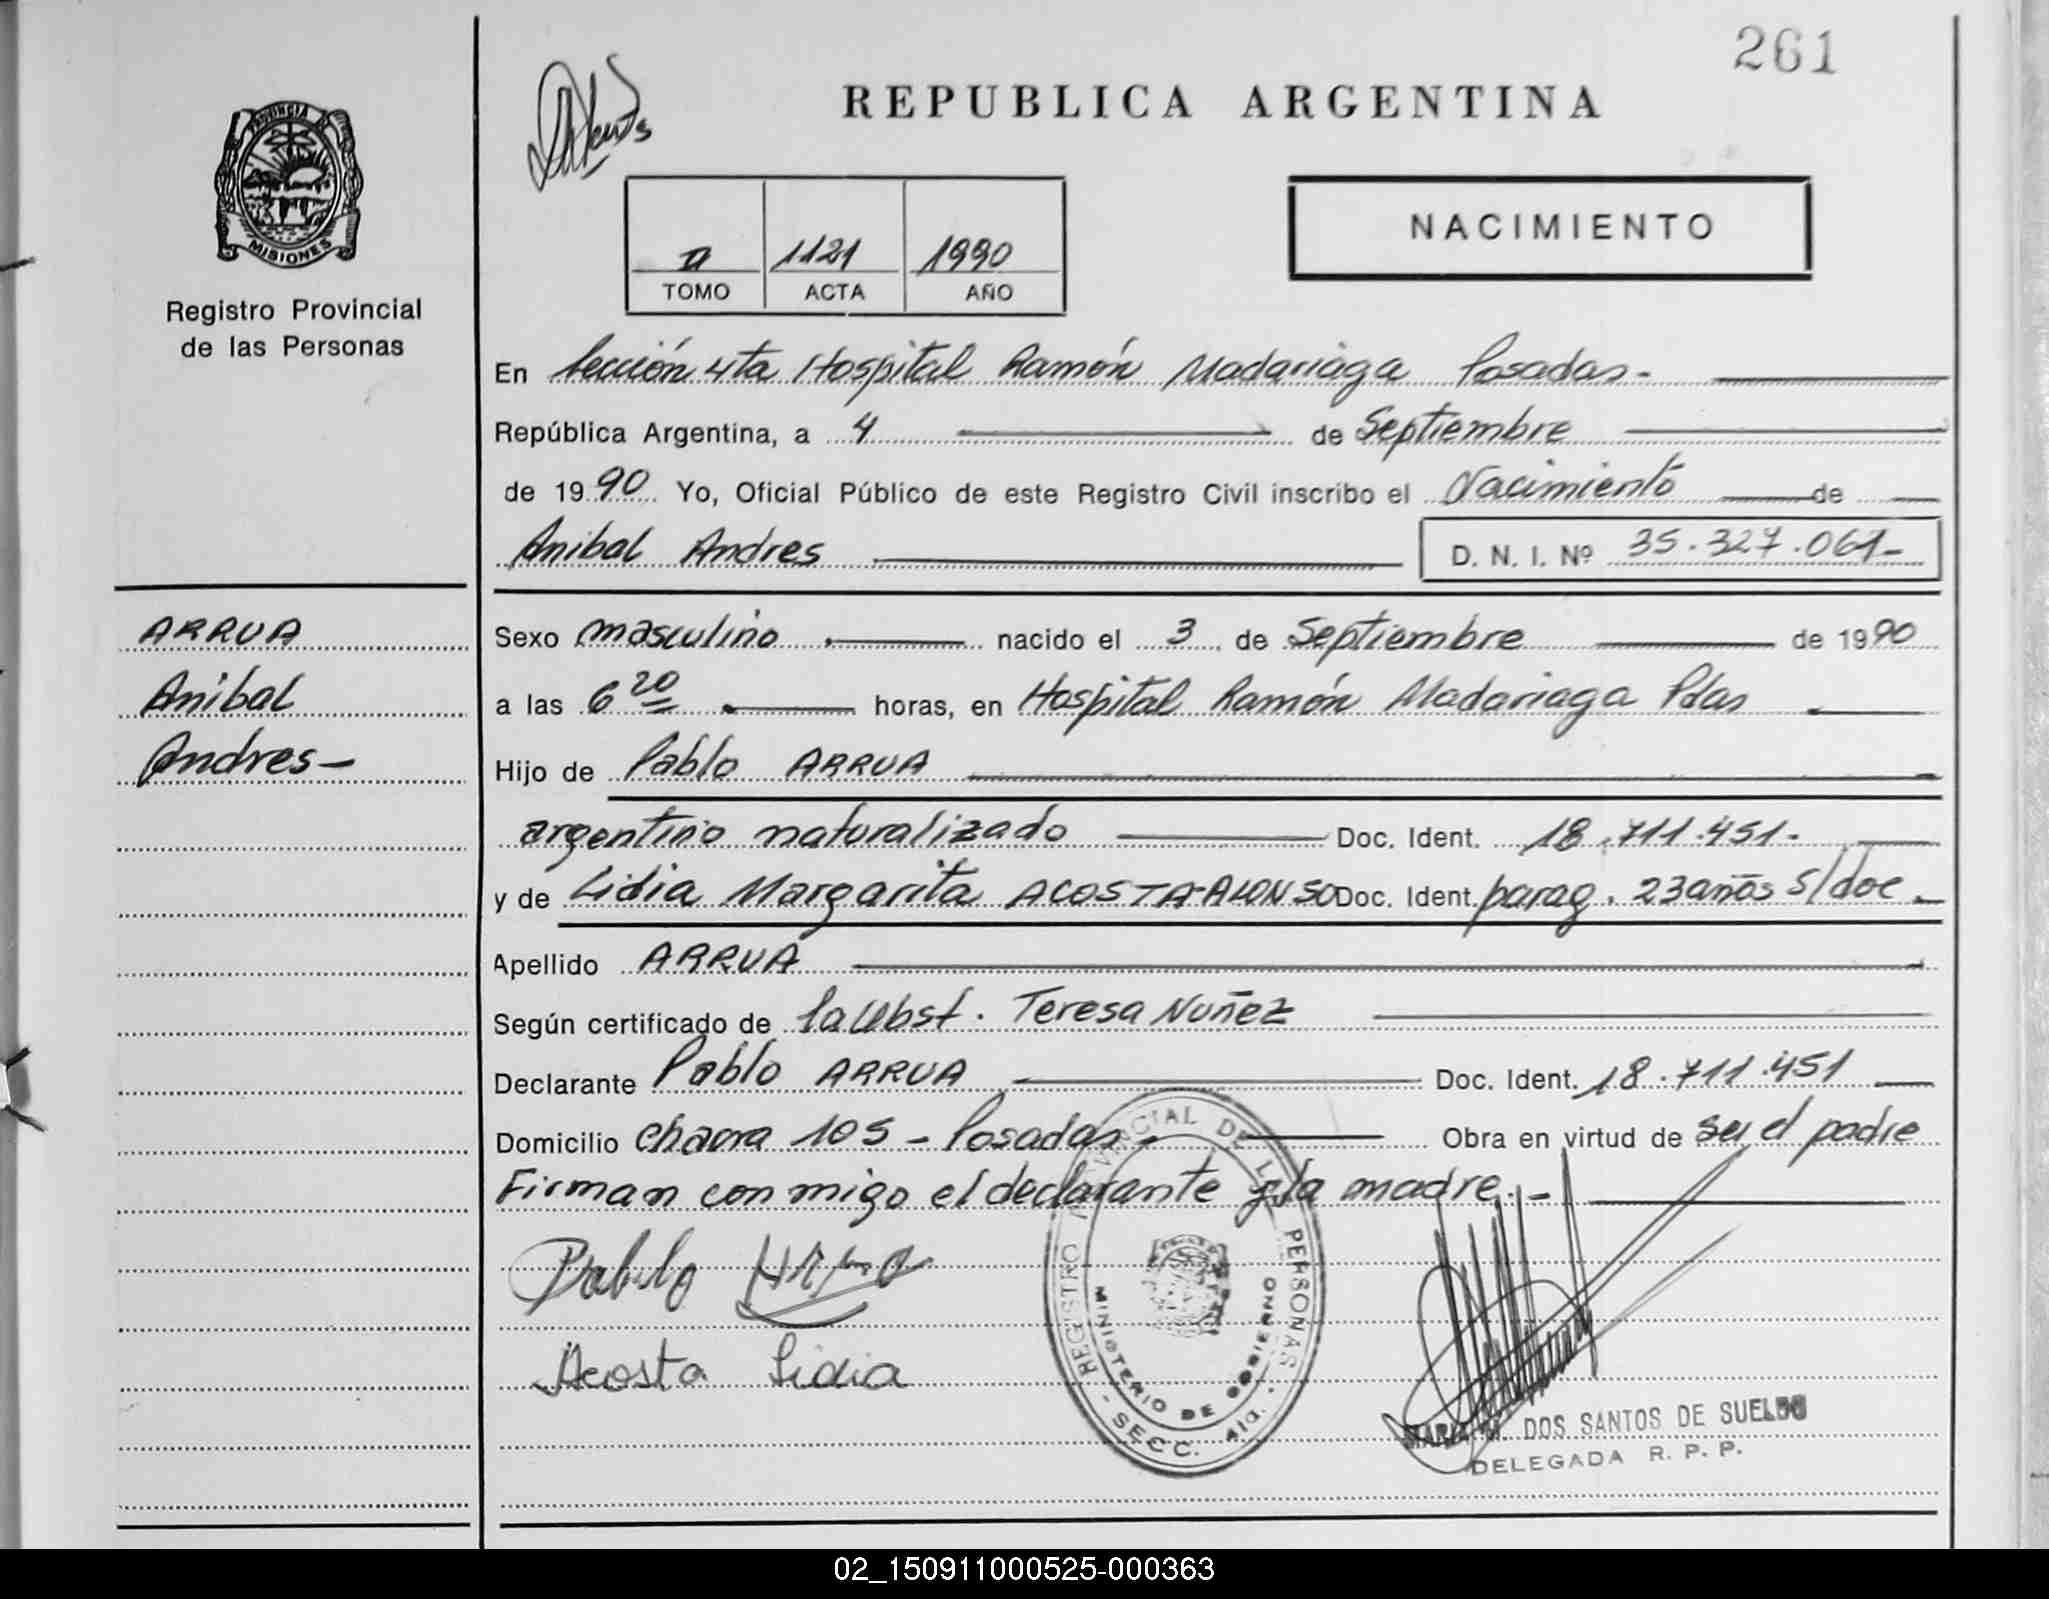 261
REPUBLICA ARGENTINA
PROVINCIA DE
MISIONES
Registro Provincial
de las Personas
NACIMIENTO
II 1121 1990
TOMO ACTA AÑO
En Sección 4ta Hospital Ramón Madariaga Posadas.
República Argentina, a 4 de Septiembre
de 1990 Yo, Oficial Público de este Registro Civil inscribo el Nacimiento de
Anibal Andres D. N. I. Nº 35.327.061-
ARRUA
Anibal
Andres-
Sexo masculino nacido el 3 de Septiembre de 1990
a las 6 20 horas, en Hospital Ramón Madariaga Pdas
Hijo de Pablo ARRUA
argentino naturalizado Doc. Ident. 18.711.451.
y de Lidia Margarita ACOSTA-ALONSO Doc. Ident. parag. 23 años s/doc
Apellido ARRUA
Según certificado de la Obst. Teresa Nuñez
Declarante Pablo ARRUA Doc. Ident. 18.711.451
Domicilio chacra 105 - Posadas- Obra en virtud de ser el padre
Firman conmigo el declarante y la madre.-
Pablo Arrua
Acosta Lidia
REGISTRO PROVINCIAL DE LAS PERSONAS - SECC. 4ta.
MINISTERIO DE GOBIERNO
MARIA M. DOS SANTOS DE SUELDO
DELEGADA R. P. P.
02_150911000525-000363